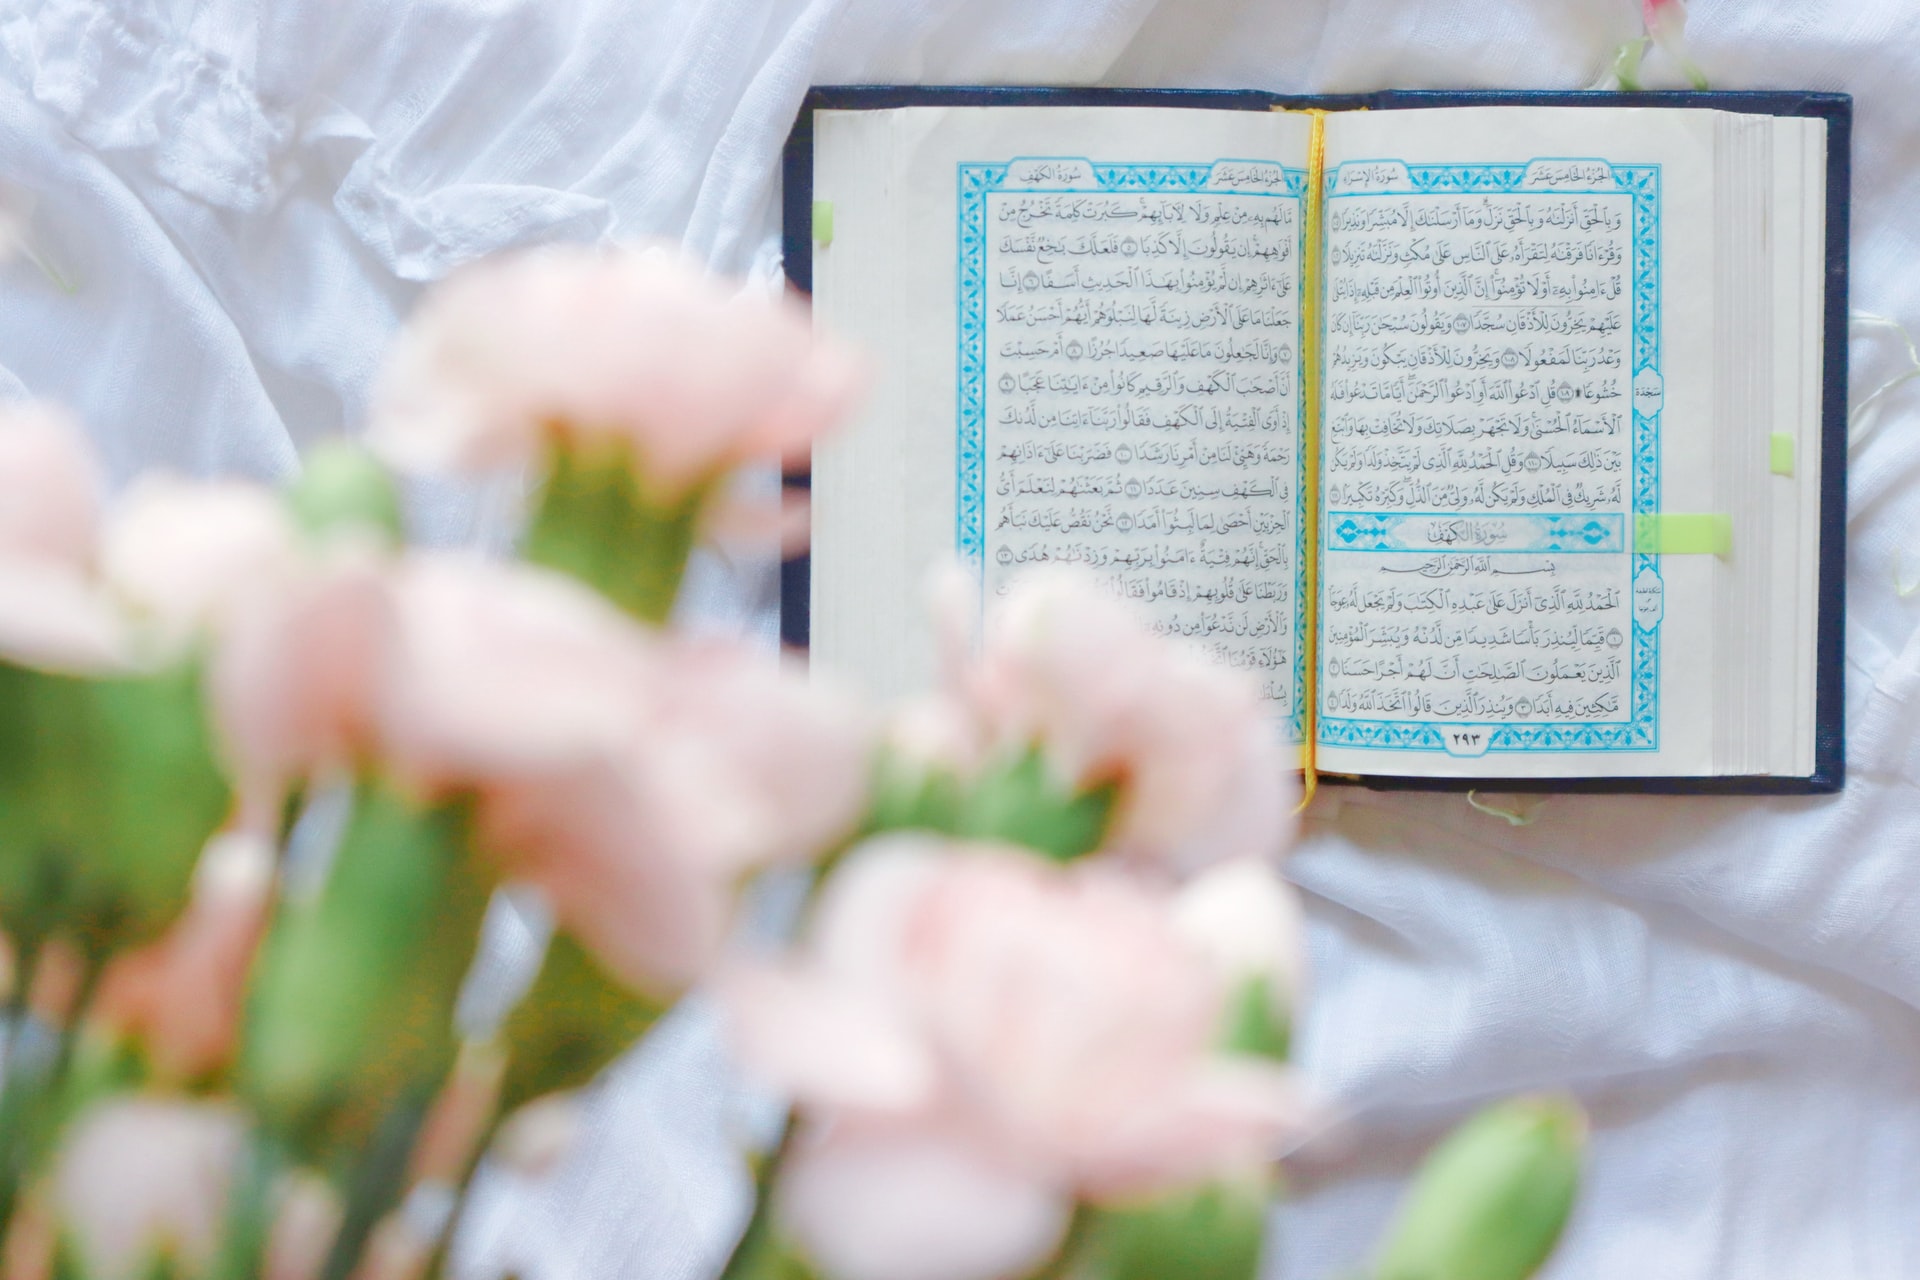 سُورَةُ الإِسْرَاءِ
الجُزْءُ الخَامِسَ عَشَرَ
وَبِالْحَقِّ أَنزَلْنَاهُ وَبِالْحَقِّ نَزَلَ وَمَا أَرْسَلْنَاكَ إِلَّا مُبَشِّرًا وَنَذِيرًا ١٠٥
وَقُرْءَانًا فَرَقْنَاهُ لِتَقْرَأَهُ عَلَى النَّاسِ عَلَى مُكْثٍ وَنَزَّلْنَاهُ تَنزِيلًا ١٠٦
قُلْ ءَامِنُوا بِهِ أَوْ لَا تُؤْمِنُوا إِنَّ الَّذِينَ أُوتُوا الْعِلْمَ مِن قَبْلِهِ إِذَا يُتْلَى
عَلَيْهِمْ يَخِرُّونَ لِلْأَذْقَانِ سُجَّدًا ١٠٧ وَيَقُولُونَ سُبْحَانَ رَبِّنَا إِن كَانَ
وَعْدُ رَبِّنَا لَمَفْعُولًا ١٠٨ وَيَخِرُّونَ لِلْأَذْقَانِ يَبْكُونَ وَيَزِيدُهُمْ
خُشُوعًا ۩ ١٠٩ قُلِ ادْعُوا اللَّهَ أَوِ ادْعُوا الرَّحْمَٰنَ أَيًّا مَّا تَدْعُوا فَلَهُ
سَجْدَة
الْأَسْمَاءُ الْحُسْنَى وَلَا تَجْهَرْ بِصَلَاتِكَ وَلَا تُخَافِتْ بِهَا وَابْتَغِ
بَيْنَ ذَٰلِكَ سَبِيلًا ١١٠ وَقُلِ الْحَمْدُ لِلَّهِ الَّذِي لَمْ يَتَّخِذْ وَلَدًا وَلَمْ يَكُن
لَّهُ شَرِيكٌ فِي الْمُلْكِ وَلَمْ يَكُن لَّهُ وَلِيٌّ مِّنَ الذُّلِّ وَكَبِّرْهُ تَكْبِيرًا ١١١
سُورَةُ الكَهْفِ
بِسْمِ اللَّهِ الرَّحْمَٰنِ الرَّحِيمِ
الْحَمْدُ لِلَّهِ الَّذِي أَنزَلَ عَلَى عَبْدِهِ الْكِتَابَ وَلَمْ يَجْعَل لَّهُ عِوَجًا
١ قَيِّمًا لِّيُنذِرَ بَأْسًا شَدِيدًا مِّن لَّدُنْهُ وَيُبَشِّرَ الْمُؤْمِنِينَ
الَّذِينَ يَعْمَلُونَ الصَّالِحَاتِ أَنَّ لَهُمْ أَجْرًا حَسَنًا ٢
مَّاكِثِينَ فِيهِ أَبَدًا ٣ وَيُنذِرَ الَّذِينَ قَالُوا اتَّخَذَ اللَّهُ وَلَدًا ٤
٢٩٣
سُورَةُ الكَهْفِ
الجُزْءُ الخَامِسَ عَشَرَ
مَّا لَهُم بِهِ مِنْ عِلْمٍ وَلَا لِآبَائِهِمْ كَبُرَتْ كَلِمَةً تَخْرُجُ مِنْ
أَفْوَاهِهِمْ إِن يَقُولُونَ إِلَّا كَذِبًا ٥ فَلَعَلَّكَ بَاخِعٌ نَّفْسَكَ
عَلَى ءَاثَارِهِمْ إِن لَّمْ يُؤْمِنُوا بِهَٰذَا الْحَدِيثِ أَسَفًا ٦ إِنَّا
جَعَلْنَا مَا عَلَى الْأَرْضِ زِينَةً لَّهَا لِنَبْلُوَهُمْ أَيُّهُمْ أَحْسَنُ عَمَلًا
٧ وَإِنَّا لَجَاعِلُونَ مَا عَلَيْهَا صَعِيدًا جُرُزًا ٨ أَمْ حَسِبْتَ
أَنَّ أَصْحَابَ الْكَهْفِ وَالرَّقِيمِ كَانُوا مِنْ ءَايَاتِنَا عَجَبًا ٩
إِذْ أَوَى الْفِتْيَةُ إِلَى الْكَهْفِ فَقَالُوا رَبَّنَا ءَاتِنَا مِن لَّدُنكَ
رَحْمَةً وَهَيِّئْ لَنَا مِنْ أَمْرِنَا رَشَدًا ١٠ فَضَرَبْنَا عَلَى ءَاذَانِهِمْ
فِي الْكَهْفِ سِنِينَ عَدَدًا ١١ ثُمَّ بَعَثْنَاهُمْ لِنَعْلَمَ أَيُّ
الْحِزْبَيْنِ أَحْصَى لِمَا لَبِثُوا أَمَدًا ١٢ نَّحْنُ نَقُصُّ عَلَيْكَ نَبَأَهُم
بِالْحَقِّ إِنَّهُمْ فِتْيَةٌ ءَامَنُوا بِرَبِّهِمْ وَزِدْنَاهُمْ هُدًى ١٣
وَرَبَطْنَا عَلَى قُلُوبِهِمْ إِذْ قَامُوا فَقَالُوا
وَالْأَرْضِ لَن نَّدْعُوَا مِن دُونِهِ
هَٰؤُلَاءِ قَوْمُنَا